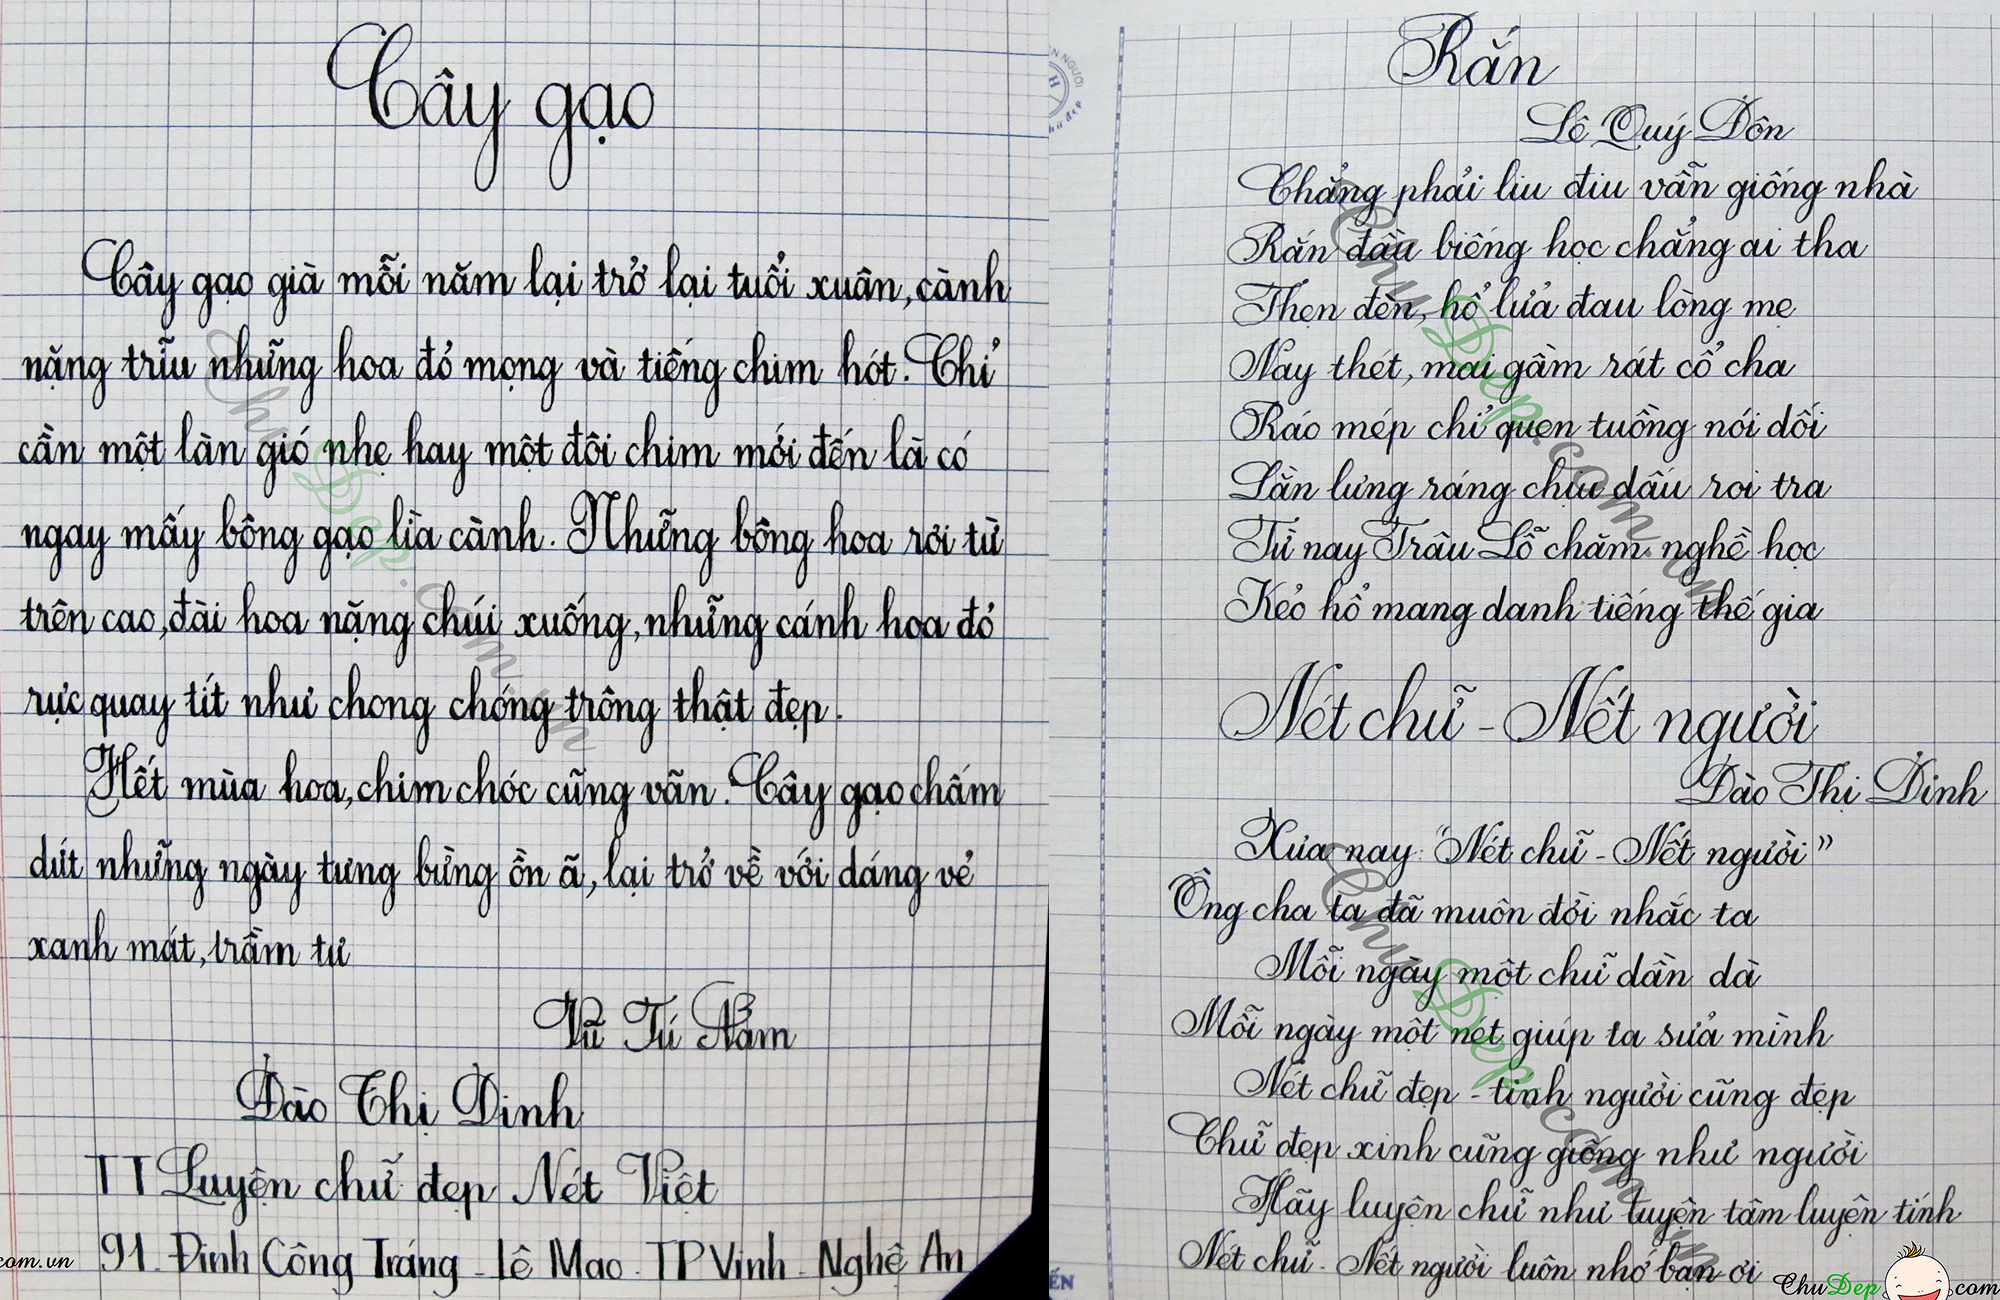 Cây gạo
Cây gạo già mỗi năm lại trở lại tuổi xuân, cành
nặng trĩu những hoa đỏ mọng và tiếng chim hót. Chỉ
cần một làn gió nhẹ hay một đôi chim mới đến là có
ngay mấy bông gạo lìa cành. Những bông hoa rơi từ
trên cao, đài hoa nặng chúi xuống, những cánh hoa đỏ
rực quay tít như chong chóng trông thật đẹp.
Hết mùa hoa, chim chóc cũng vãn. Cây gạo chấm
dứt những ngày tưng bừng ồn ã, lại trở về với dáng vẻ
xanh mát, trầm tư
Vũ Tú Nam
Đào Thị Dinh
TT Luyện chữ đẹp Nét Việt
91. Đinh Công Tráng - Lê Mao - TP Vinh - Nghệ An
com.vn
Rắn
Lê Quý Đôn
Chẳng phải liu điu vẫn giống nhà
Rắn đầu biếng học chẳng ai tha
Thẹn đèn, hổ lửa đau lòng mẹ
Nay thét, mai gầm rát cổ cha
Ráo mép chỉ quen tuồng nói dối
Lằn lưng ráng chịu dấu roi tra
Từ nay Trâu Lỗ chăm nghề học
Kẻo hổ mang danh tiếng thế gia
Nét chữ - Nết người
Đào Thị Dinh
Xưa nay "Nét chữ - Nết người"
Ông cha ta đã muôn đời nhắc ta
Mỗi ngày một chữ dần dà
Mỗi ngày một nét giúp ta sửa mình
Nét chữ đẹp - tính người cũng đẹp
Chữ đẹp xinh cũng giống như người
Hãy luyện chữ như luyện tâm luyện tính
Nét chữ - Nết người luôn nhớ bạn ơi
ChuDep.com.vn
ChuDep.com.vn
ChuDep.com.vn
ChuDep com